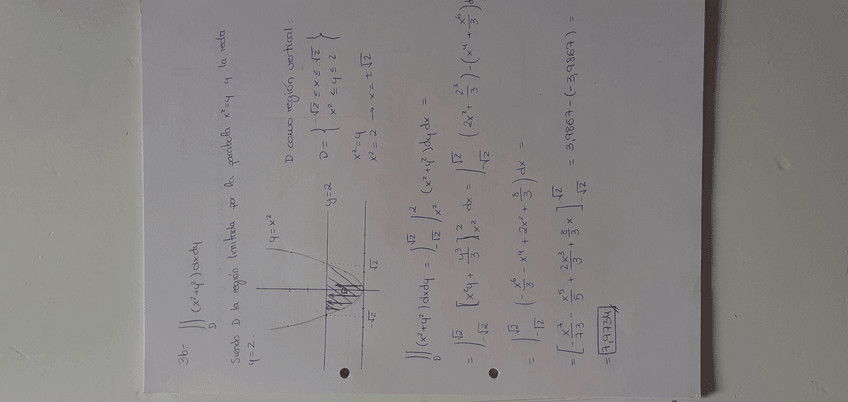 3b- ∬D (x²+y²) dxdy
Siendo D la región limitada por la parábola x²=y y la recta
y=2.
y=x²
y=2
D
-√2 √2
D como región vertical:
D = { -√2 ≤ x ≤ √2
x² ≤ y ≤ 2 }
x²=y
x²=2 → x=±√2
∬D (x²+y²) dxdy = ∫-√2^√2 ∫x²^2 (x²+y²) dy dx =
= ∫-√2^√2 [x²y + y³/3]x²^2 dx = ∫-√2^√2 (2x² + 2³/3) - (x⁴ + x⁶/3) d
= ∫-√2^√2 (-x⁶/3 - x⁴ + 2x² + 8/3) dx =
= [-x⁷/73 - x⁵/5 + 2x³/3 + 8/3 x]-√2^√2 = 3,9867 - (-3,9867) =
= 7,9734